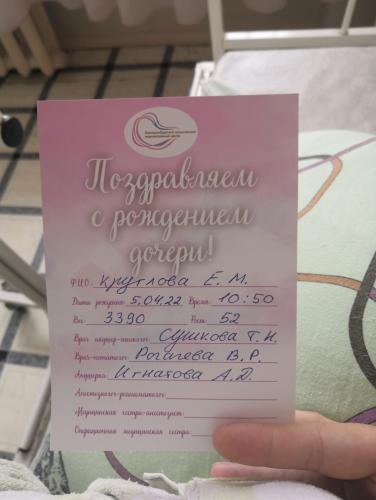 Екатеринбургский клинический
перинатальный центр
Поздравляем
с рождением
дочери!
ФИО: Круглова Е. М.
Дата рождения: 5.04.22 Время: 10:50
Вес: 3390 Рост: 52
Врач акушер-гинеколог: Сушкова Т. Н.
Врач-неонатолог: Рогачева В. Р.
Акушерка: Игнатова А. Д.
Анестезиолог-реаниматолог:
Медицинская сестра-анестезист:
Операционная медицинская сестра: